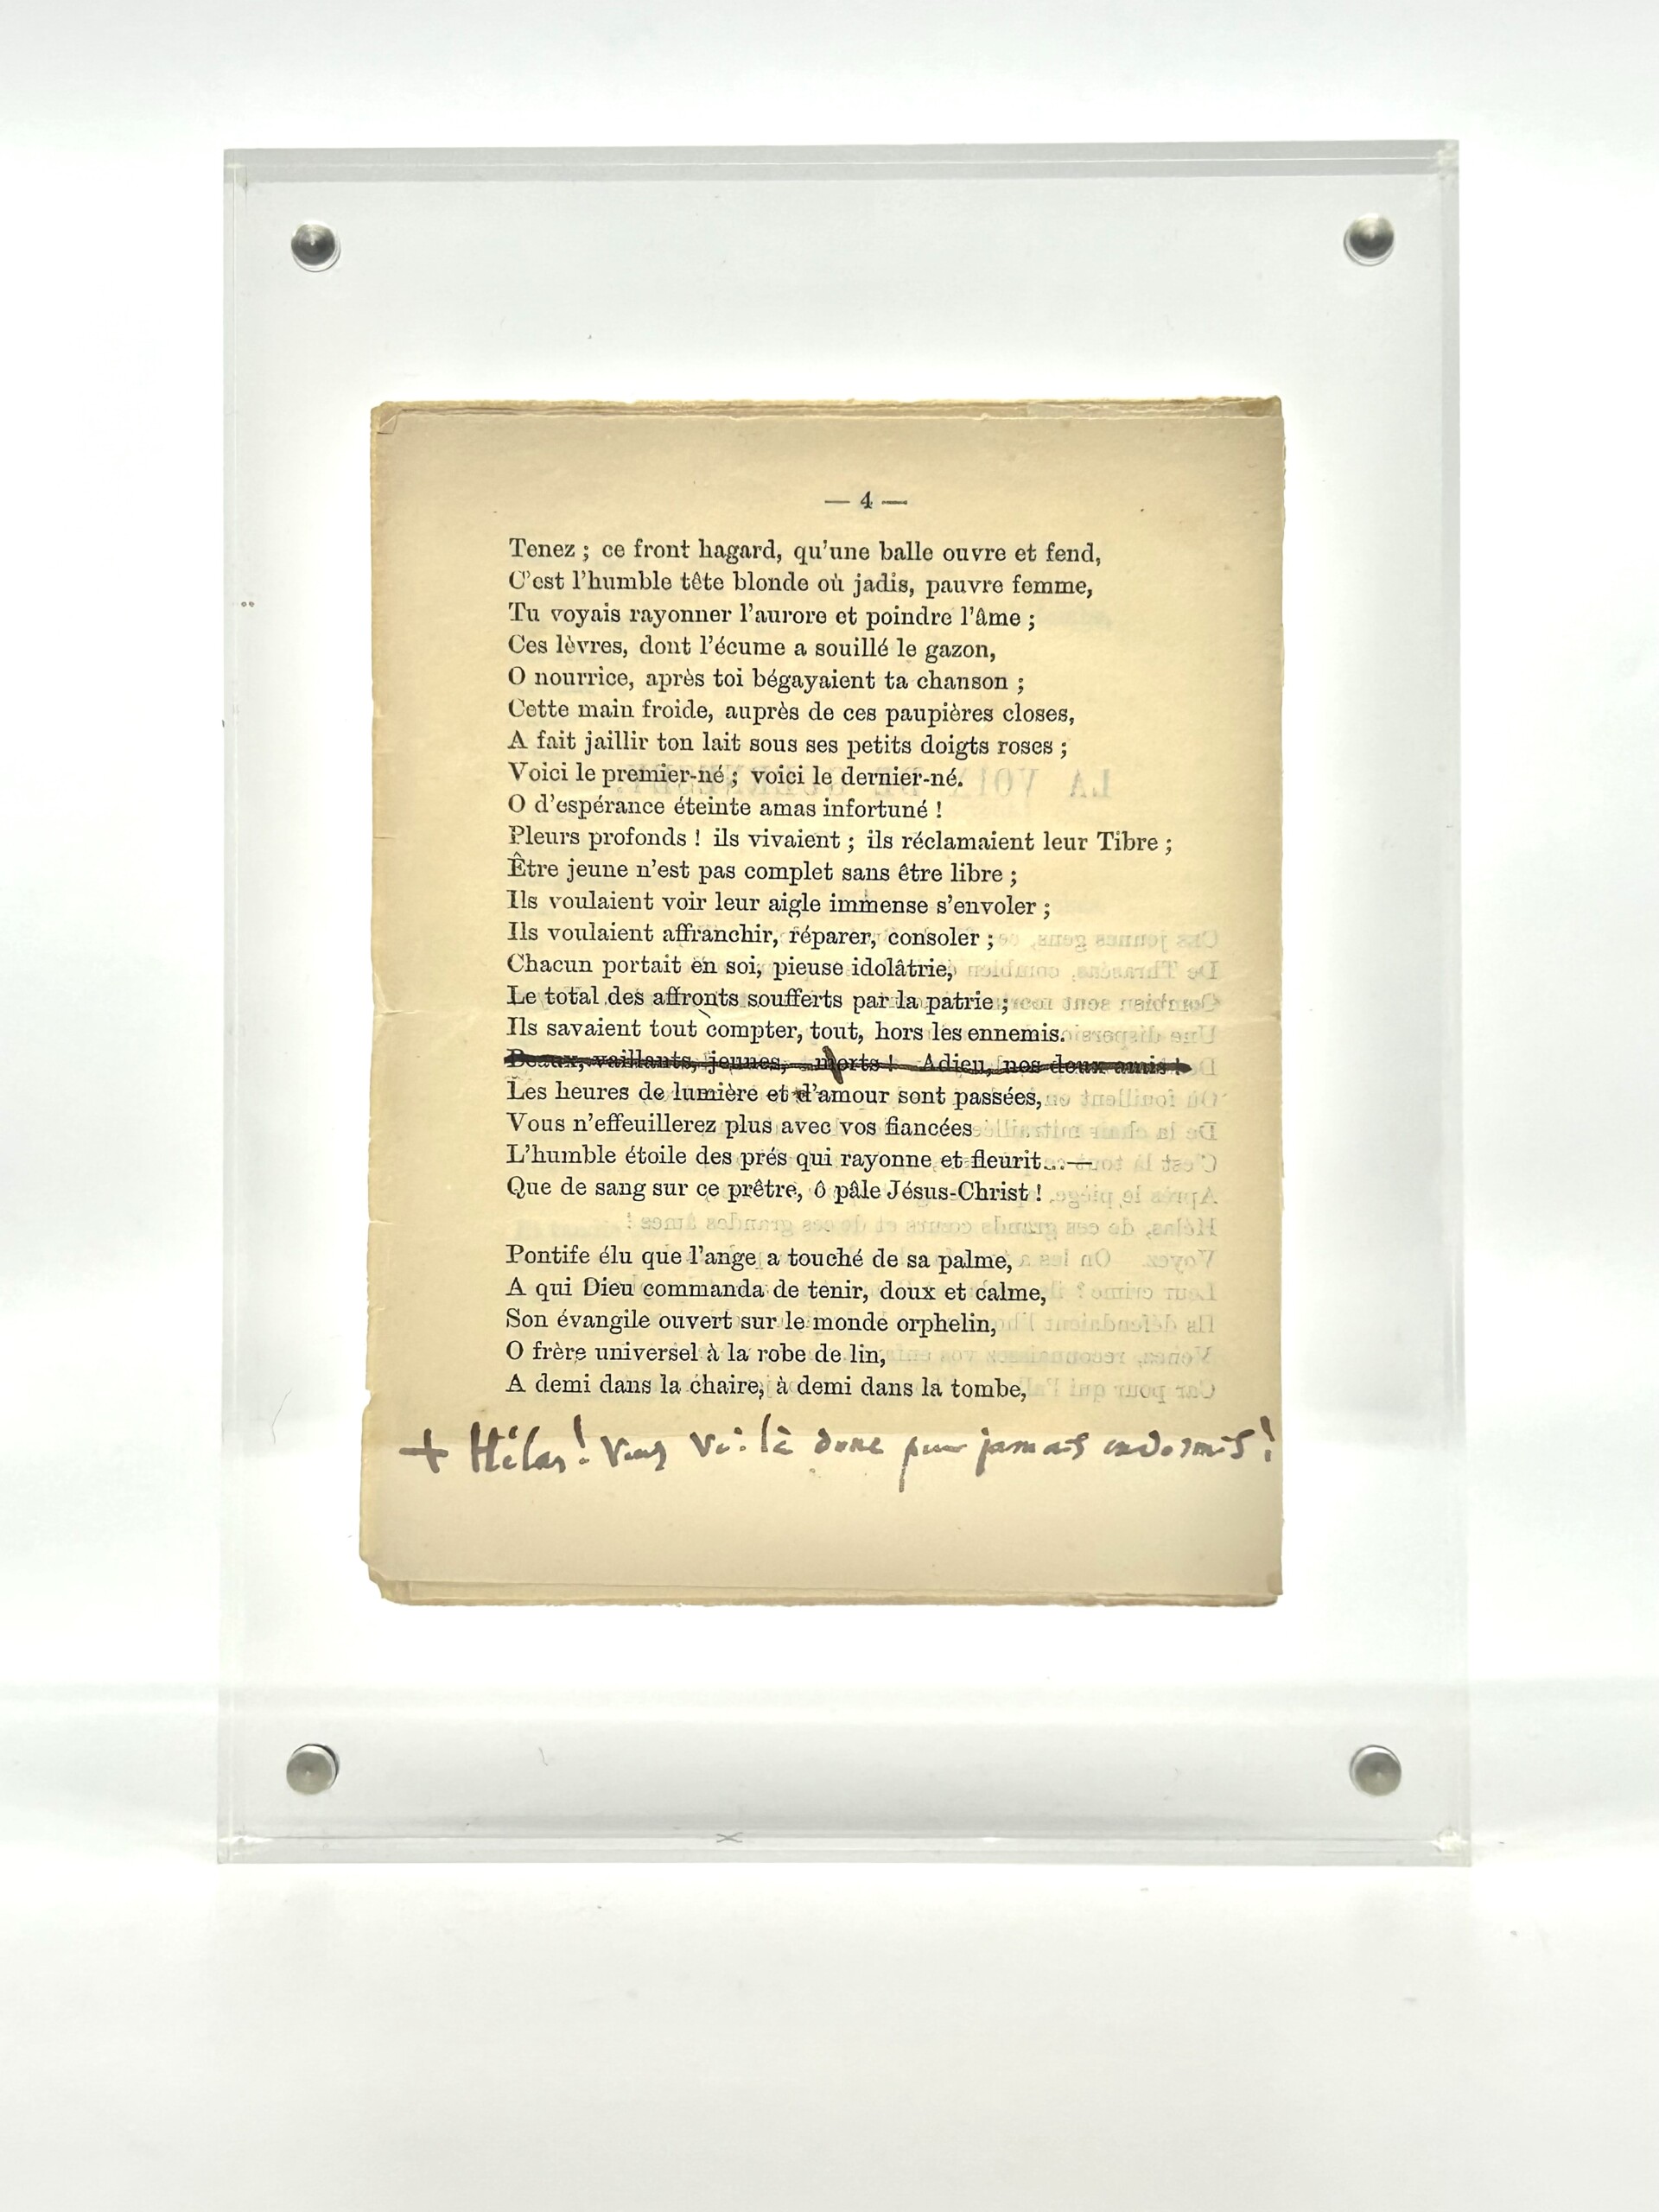 — 4 —
Tenez ; ce front hagard, qu'une balle ouvre et fend,
C'est l'humble tête blonde où jadis, pauvre femme,
Tu voyais rayonner l'aurore et poindre l'âme ;
Ces lèvres, dont l'écume a souillé le gazon,
O nourrice, après toi bégayaient ta chanson ;
Cette main froide, auprès de ces paupières closes,
A fait jaillir ton lait sous ses petits doigts roses ;
Voici le premier-né ; voici le dernier-né.
O d'espérance éteinte amas infortuné !
Pleurs profonds ! ils vivaient ; ils réclamaient leur Tibre ;
Être jeune n'est pas complet sans être libre ;
Ils voulaient voir leur aigle immense s'envoler ;
Ils voulaient affranchir, réparer, consoler ;
Chacun portait en soi, pieuse idolâtrie,
Le total des affronts soufferts par la patrie ;
Ils savaient tout compter, tout, hors les ennemis.
Beaux, vaillants, jeunes, morts ! Adieu, nos doux amis !
Les heures de lumière et d'amour sont passées,
Vous n'effeuillerez plus avec vos fiancées
L'humble étoile des prés qui rayonne et fleurit...—
Que de sang sur ce prêtre, ô pâle Jésus-Christ !
Pontife élu que l'ange a touché de sa palme,
A qui Dieu commanda de tenir, doux et calme,
Son évangile ouvert sur le monde orphelin,
O frère universel à la robe de lin,
A demi dans la chaire, à demi dans la tombe,
+ Hélas ! Vous voilà donc pour jamais endormis !